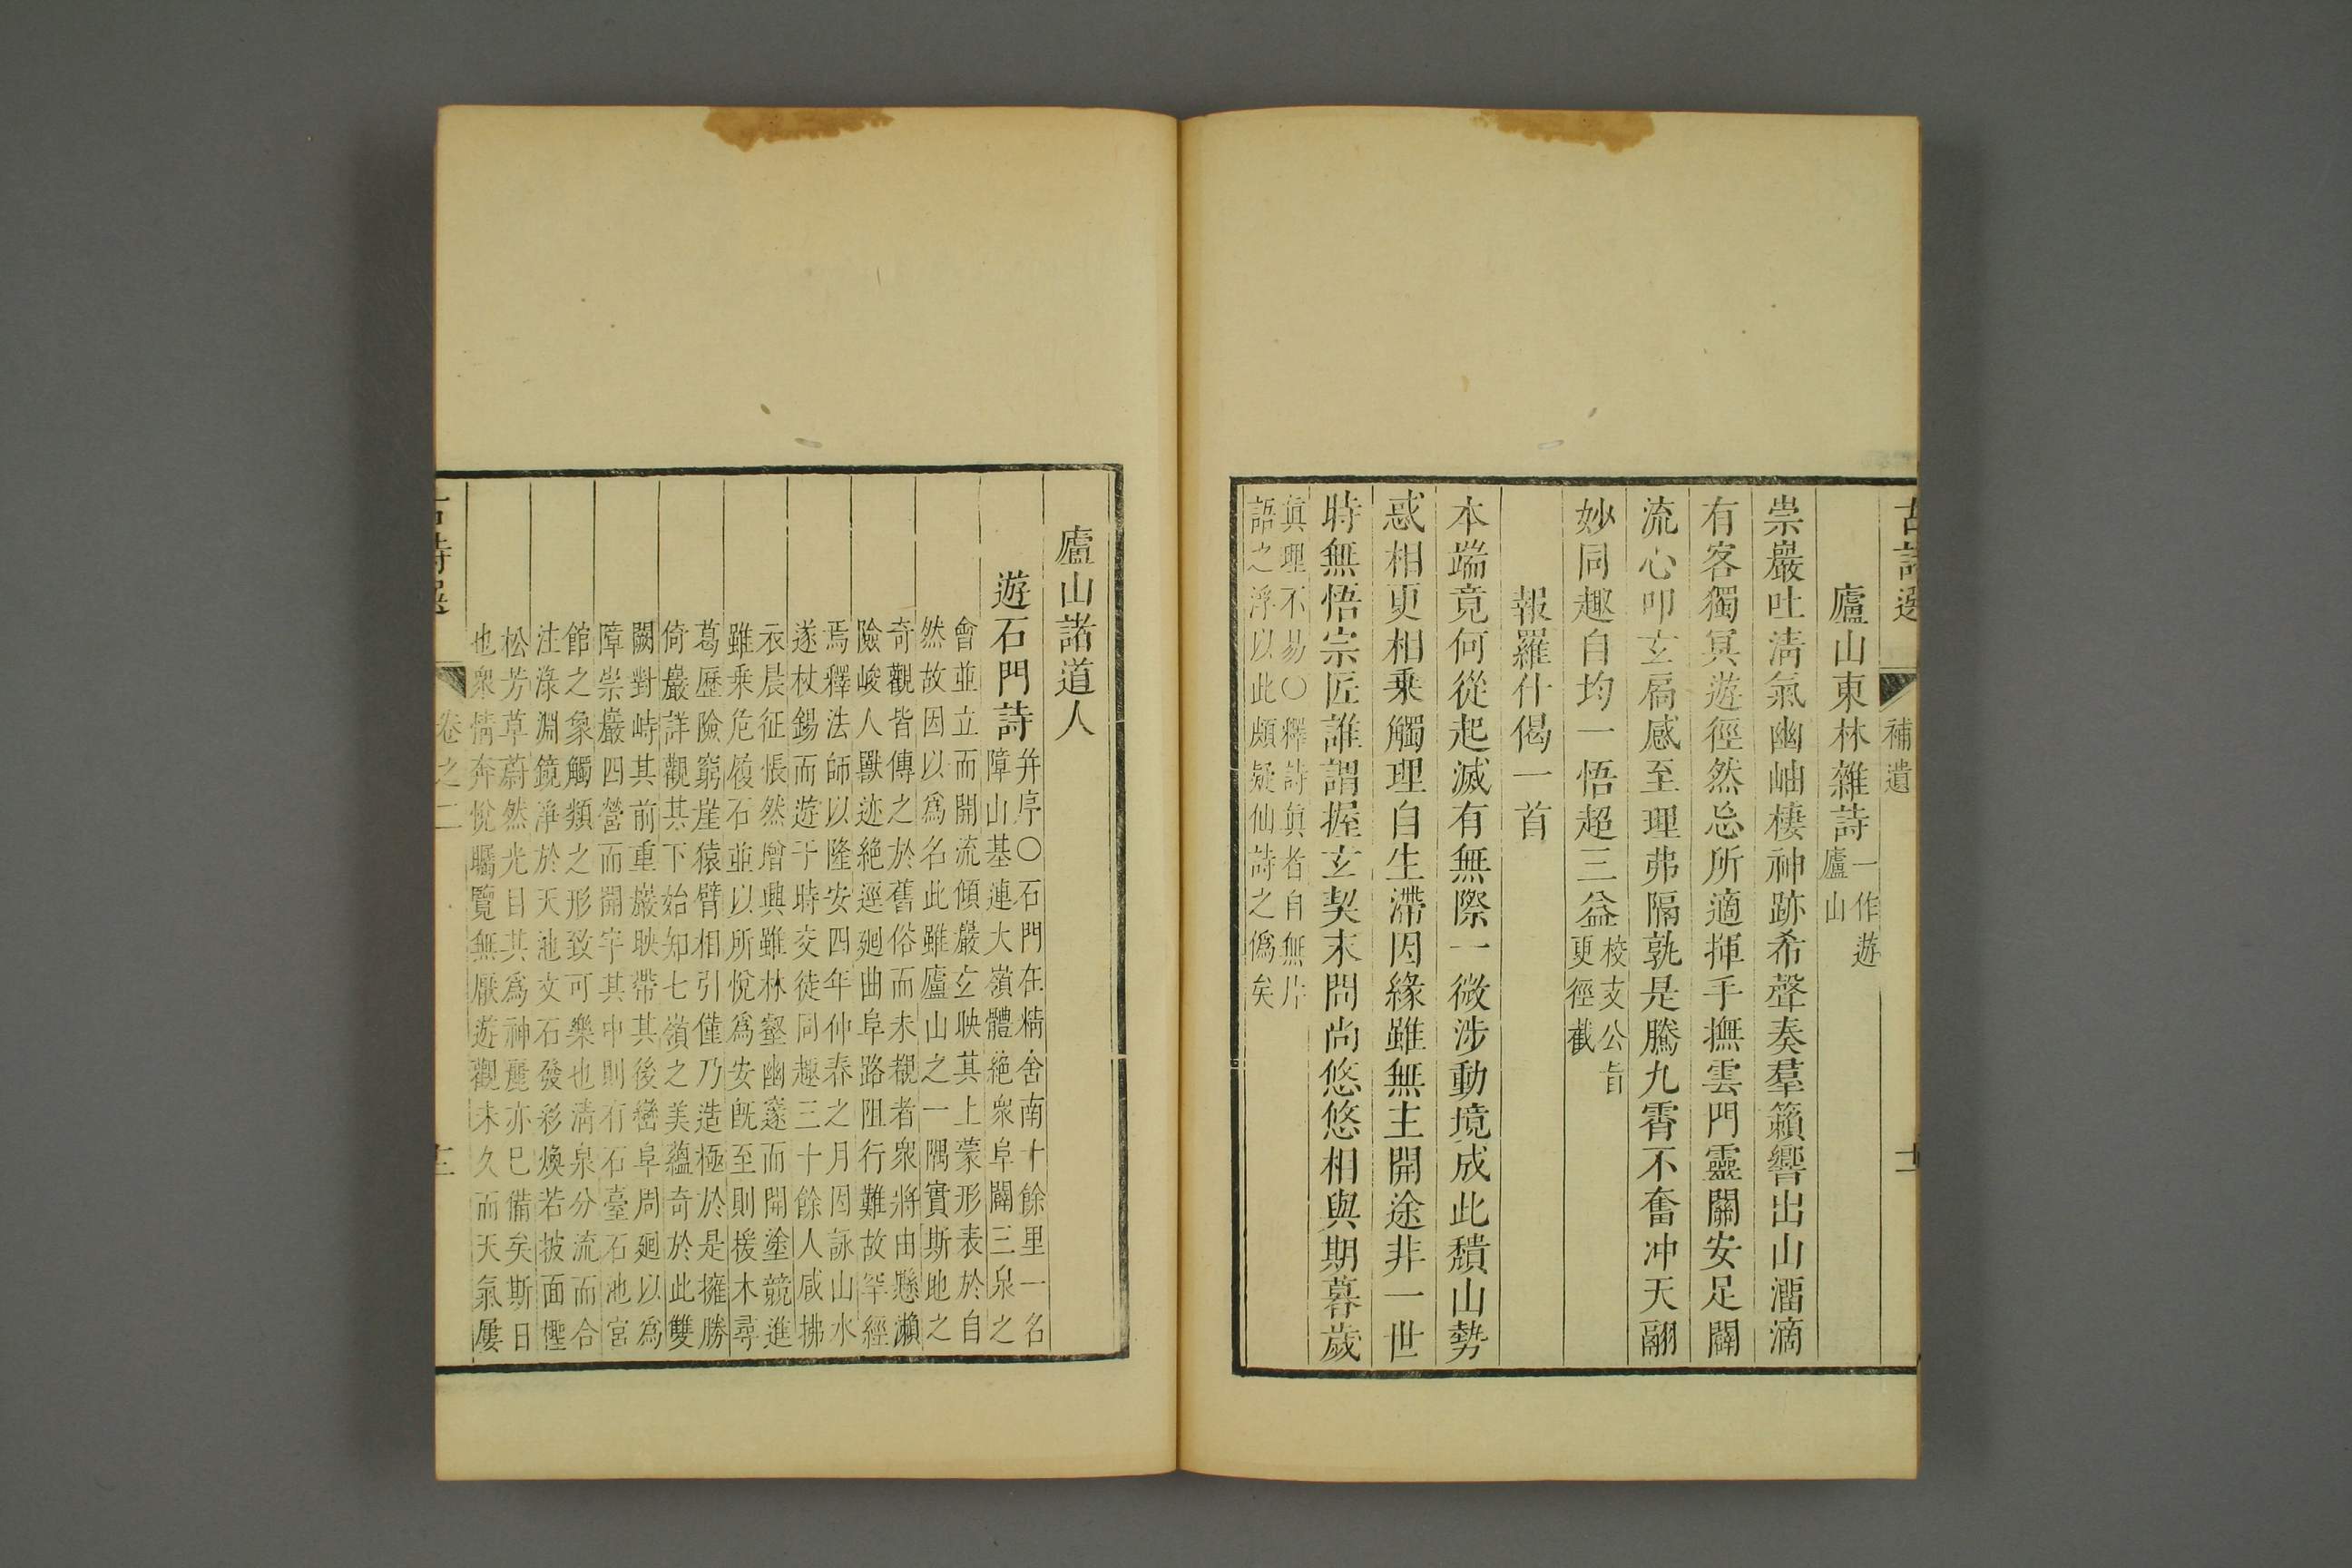 古詩選
補遺
十二
廬山東林雜詩
一作遊
廬山
崇巖吐清氣幽岫棲神跡希聲奏羣籟響出山溜滴
有客獨冥遊徑然忘所適揮手撫雲門靈關安足闢
流心叩玄扃感至理弗隔孰是騰九霄不奮冲天翮
妙同趣自均一悟超三益
校支公旨
更徑截
報羅什偈一首
本端竟何從起滅有無際一微涉動境成此頹山勢
惑相更相乗觸理自生滯因緣雖無主開途非一世
時無悟宗匠誰謂握玄契末問尚悠悠相與期暮歲
眞理不易〇釋詩眞者自無片
語之浮以此頗疑仙詩之僞矣
廬山諸道人
遊石門詩
并序〇石門在精舍南十餘里一名
障山基連大嶺體絶衆阜闢三泉之
會並立而開流傾巖玄映其上蒙形表於自
然故因以爲名此雖廬山之一隅實斯地之
奇觀皆傳之於舊俗而未覩者衆將由懸瀨
險峻人獸迹絶逕廻曲阜路阻行難故罕經
焉釋法師以隆安四年仲春之月因詠山水
遂杖錫而遊于時交徒同趣三十餘人咸拂
衣晨征悵然增興雖林壑幽邃而開塗競進
雖乗危履石並以所悅爲安旣至則援木尋
葛歷險窮崖猿臂相引僅乃造極於是擁勝
倚巖詳觀其下始知七嶺之美蘊奇於此雙
闕對峙其前重巖映帶其後巒阜周廻以爲
障崇巖四營而開宇其中則有石臺石池宮
館之象觸類之形致可樂也清泉分流而合
注淥淵鏡凈於天池文石發彩煥若披面檉
松芳草蔚然光目其爲神麗亦已備矣斯日
也衆情奔悅矚覽無厭遊觀未久而天氣屢
古詩選
卷之二